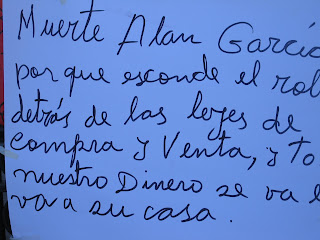 Muerte Alan García
porque esconde el rol
detrás de las leyes de
compra y Venta, y to
nuestro Dinero se va
va a su casa.